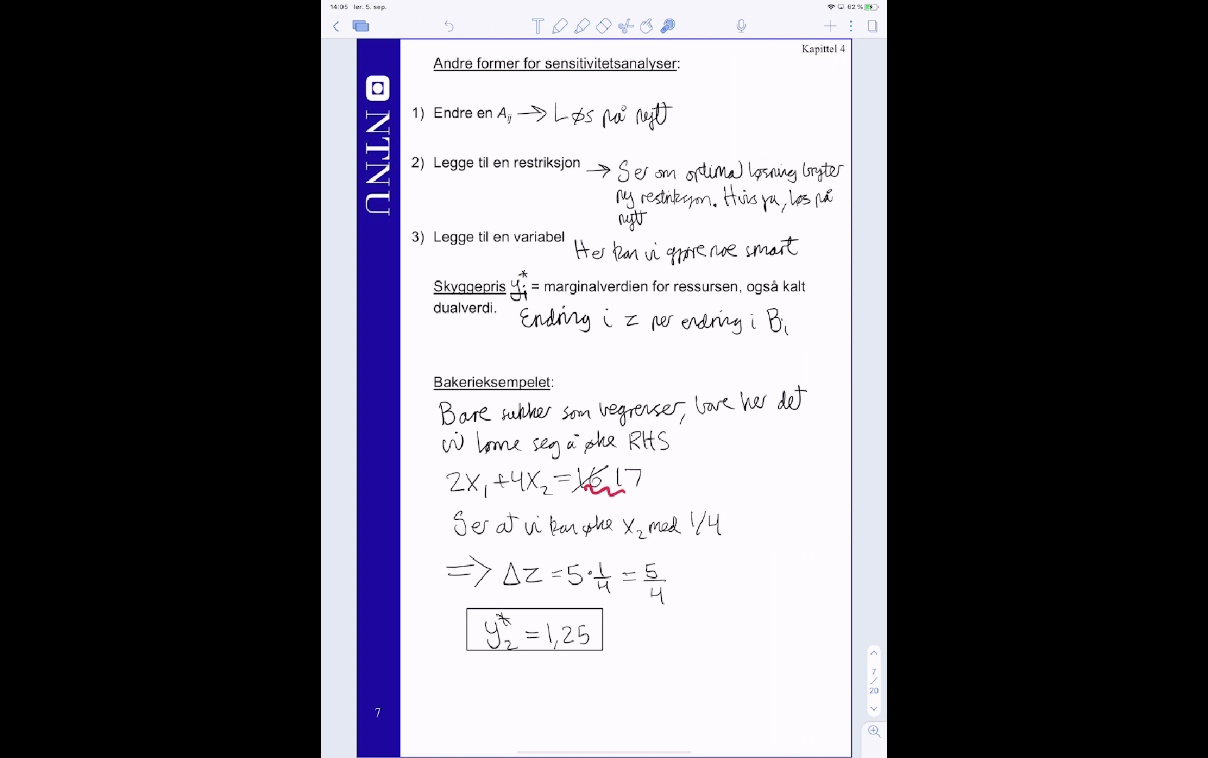 14:05 lør. 5. sep.
62 %
Kapittel 4
Andre former for sensitivitetsanalyser:
1) Endre en Aij → Løs på nytt
2) Legge til en restriksjon → Ser om optimal løsning bryter
ny restriksjon. Hvis ja, løs på
nytt
3) Legge til en variabel Her kan vi gjøre noe smart
Skyggepris yi* = marginalverdien for ressursen, også kalt
dualverdi. Endring i z per endring i Bi
Bakerieksempelet:
Bare sukker som begrenser, bare her det
vil lønne seg å øke RHS
2x1 + 4x2 = 16 17
Ser at vi kan øke x2 med 1/4
=> Δz = 5 · 1/4 = 5/4
y2* = 1,25
NTNU
7
7
/
20